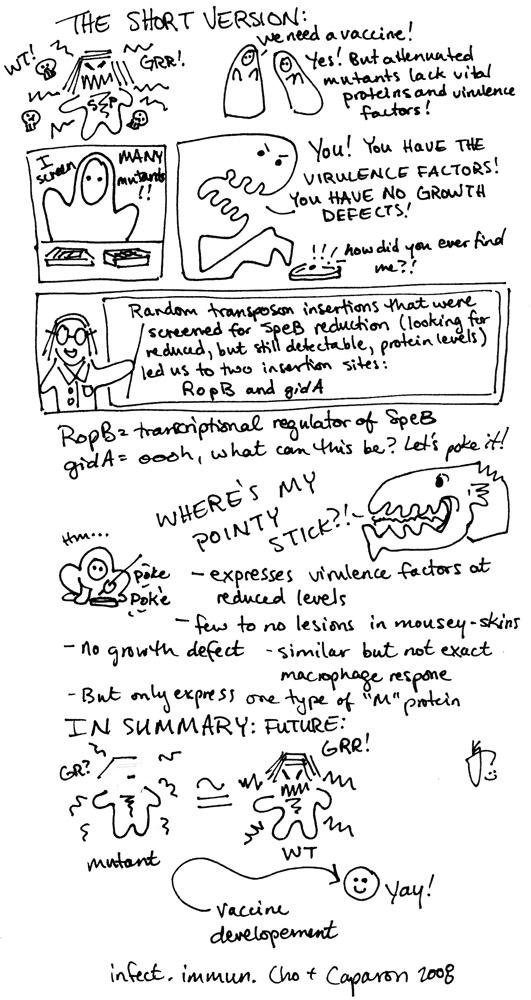 THE SHORT VERSION:
WT!
GRR!
We need a vaccine!
Yes! But attenuated
mutants lack vital
proteins and virulence
factors!
I
screen
MANY
mutants
!!
YOU! YOU HAVE THE
VIRULENCE FACTORS!
YOU HAVE NO GROWTH
DEFECTS!
!!! how did you ever find
me?!
Random transposon insertions that were
screened for SpeB reduction (looking for
reduced, but still detectable, protein levels)
led us to two insertion sites:
RopB and gidA
RopB = transcriptional regulator of SpeB
gidA = oooh, what can this be? Let's poke it!
WHERE'S MY
POINTY
STICK?!
Hm...
poke
Poke
- expresses virulence factors at
reduced levels
- few to no lesions in mousey-skins
- no growth defect - similar but not exact
macrophage respone
- But only express one type of "M" protein
IN SUMMARY: FUTURE:
GR?
GRR!
≅
mutant
WT
Yay!
vaccine
developement
infect. immun. Cho + Caparon 2008